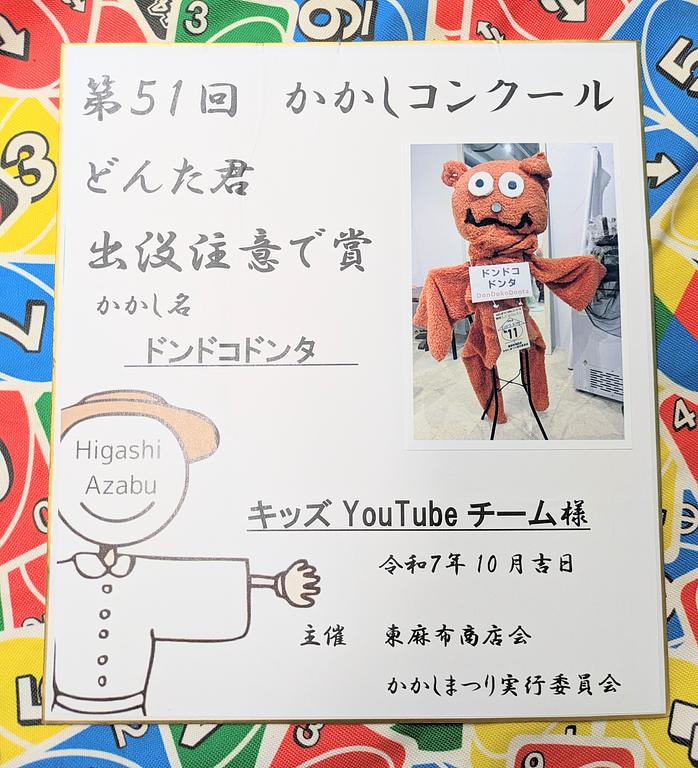 第51回 かかしコンクール
どんた君
出没注意で賞
かかし名
ドンドコドンタ
ドンドコ
ドンタ
DonDokoDonta
11
Higashi
Azabu
キッズ YouTube チーム様
令和7年 10月吉日
主催 東麻布商店会
かかしまつり実行委員会
3
7
3
5